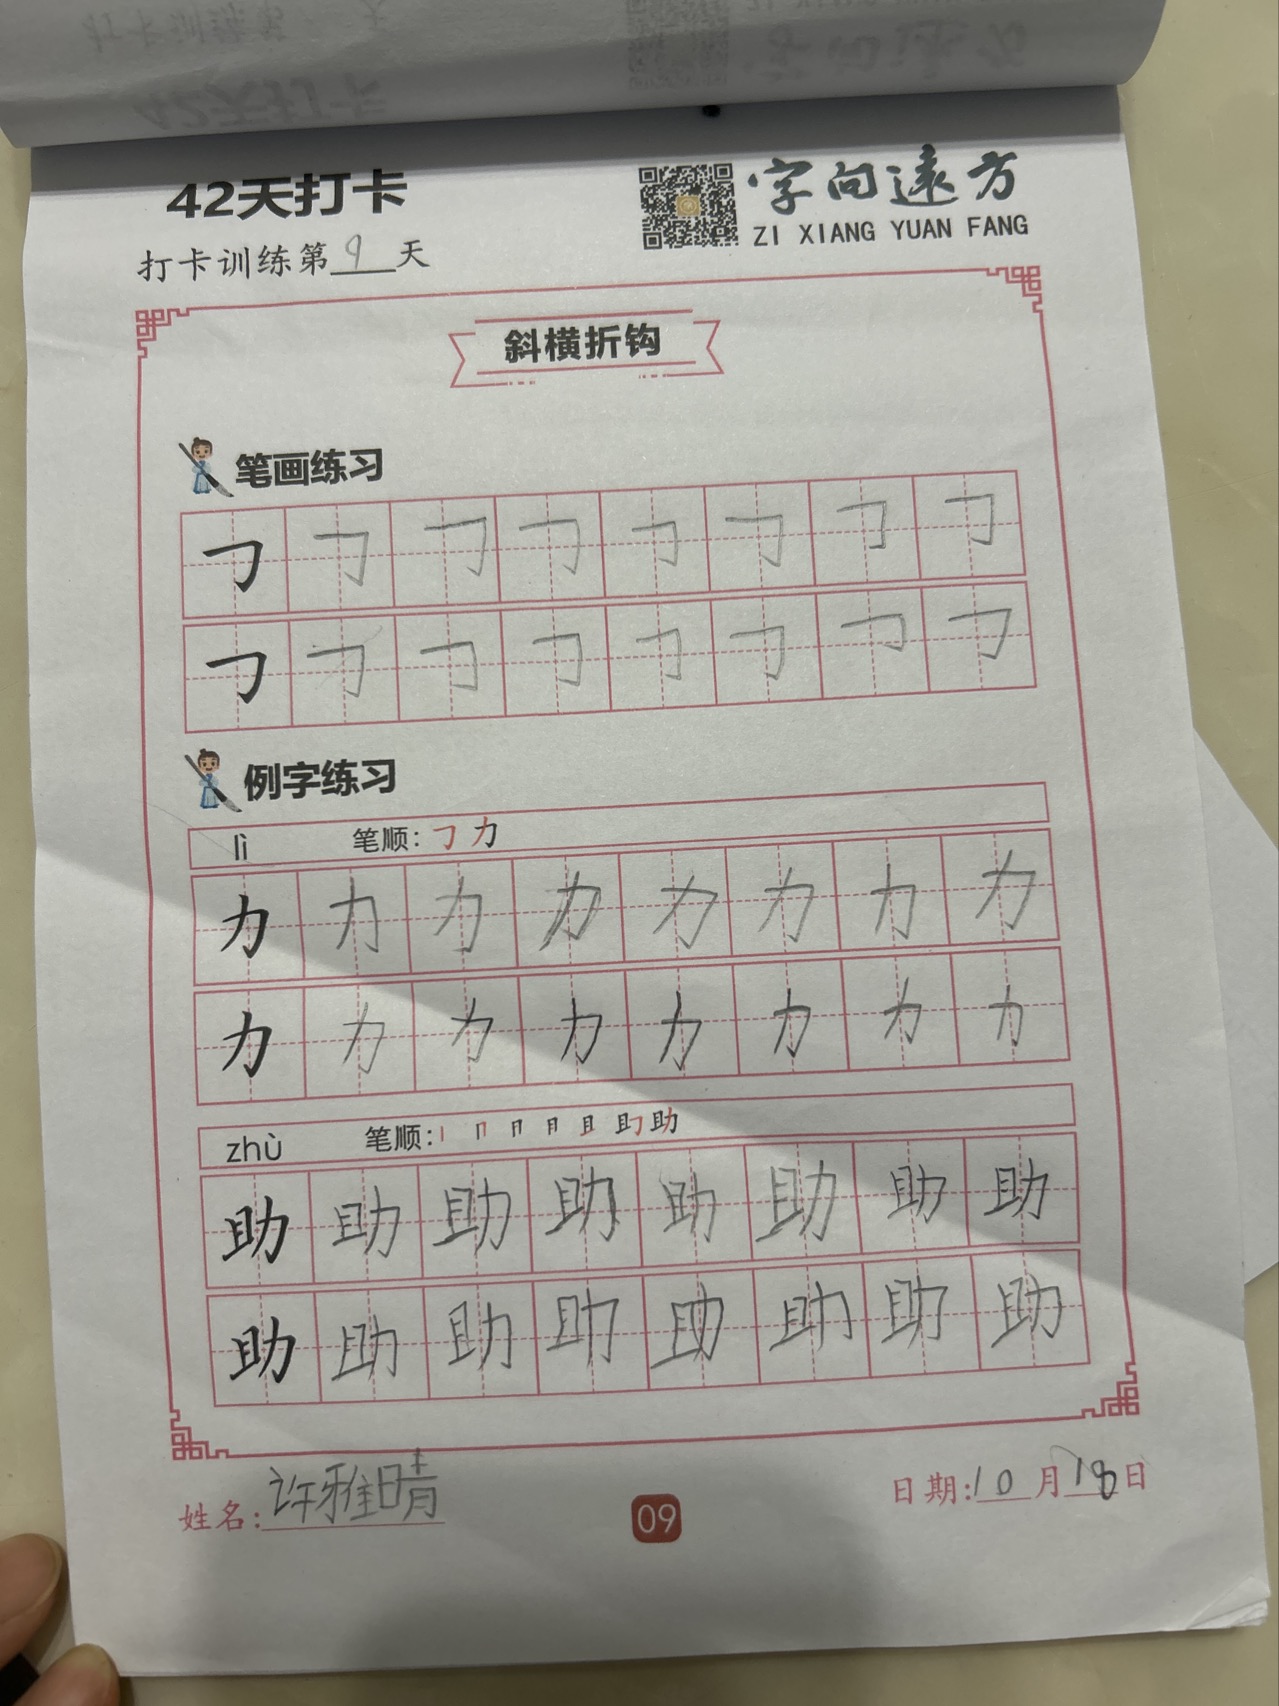 42天打卡
字向远方
ZI XIANG YUAN FANG
打卡训练第9天
斜横折钩
笔画练习
㇆ ㇆ ㇆ ㇆ ㇆ ㇆ ㇆ ㇆
㇆ ㇆ ㇆ ㇆ ㇆ ㇆ ㇆ ㇆
例字练习
lì 笔顺：㇆ 力
力 力 力 力 力 力 力 力
力 力 力 力 力 力 力 力
zhù 笔顺：丨 冂 月 且 助
助 助 助 助 助 助 助 助
助 助 助 助 助 助 助 助
姓名：许雅晴
09
日期：10月18日